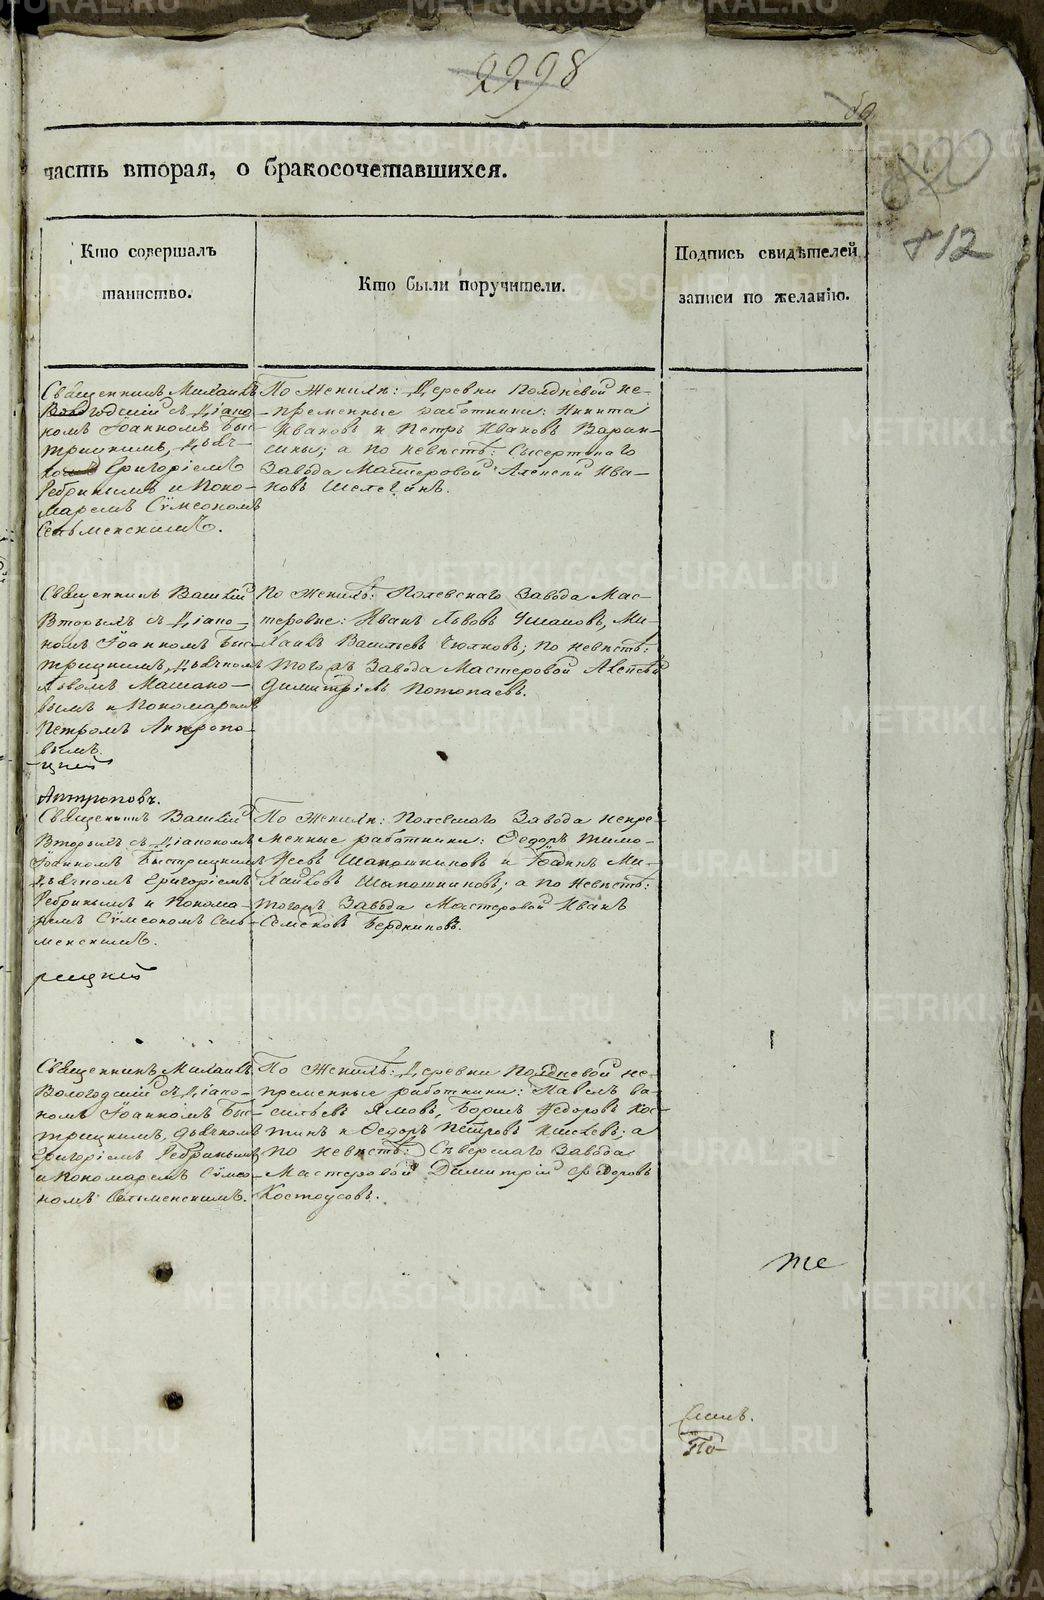 2298
812
часть вторая, о бракосочетавшихся.
Кто совершалъ
таинство.
Кто были поручители.
Подпись свидѣтелей
записи по желанію.
Священникъ Михаилъ
Вологодскій съ Діако-
номъ Іоанномъ Быс-
трицкимъ, Дьяч-
комъ Григоріемъ
Ребринымъ и Поно-
маремъ Сѵмеономъ
Сельменскимъ.
По Женихѣ: Деревни Полдневой не-
пременные работники: Никита
Ивановъ и Петръ Ивановъ Варак-
сины; а по невѣстѣ: Сысертскаго
Завода Мастеровой Алексѣй Ива-
новъ Шелегинъ.
Священникъ Василій
Вторымъ съ Діако-
номъ Іоанномъ Быс-
трицкимъ, Дьячкомъ
Львомъ
вымъ и Пономаремъ
Петромъ Антропо-
вымъ.
По Женихѣ: Полевскаго Завода Мас-
теровые: Иванъ Львовъ Ушаковъ, Ми-
хаилъ Васильевъ Чюлковъ; по невѣстѣ:
тогожъ Завода Мастеровой Алексѣй
Димитріевъ Потопаевъ.
цкій
Антроповъ.
Священникъ Василій
Вторыхъ съ Діакономъ
Іоанномъ Быстрицкимъ
Дьячкомъ Григоріемъ
Ребринымъ и Понома-
ремъ Сѵмеономъ Сель-
менскимъ.
По Женихѣ: Полевского Завода непре-
менные работники: Ѳедоръ Тимо-
ѳеевъ Шапошниковъ и Іоаннъ Ми-
хайловъ Шапошниковъ; а по невѣстѣ:
тогожъ Завода Мастеровой Иванъ
Семеновъ Бердниковъ.
рицкій
Священникъ Михаилъ
Вологодскій съ Діако-
номъ Іоанномъ Быс-
трицкимъ, дьячкомъ
Григоріемъ Ребринымъ
и Пономаремъ Сѵмео-
номъ Сельменскимъ.
По Женихѣ: Деревни Полдневой не-
пременные работники: Павелъ Ва-
сильевъ Ялховъ, Борисъ Ѳедоровъ Кос-
тинъ и Ѳедоръ Петровъ Киселевъ; а
по невѣстѣ: Сѣверскаго Завода
Мастеровой Димитрій Ѳедоровъ
Костоусовъ.
те
По
METRIKI.GASO-URAL.RU